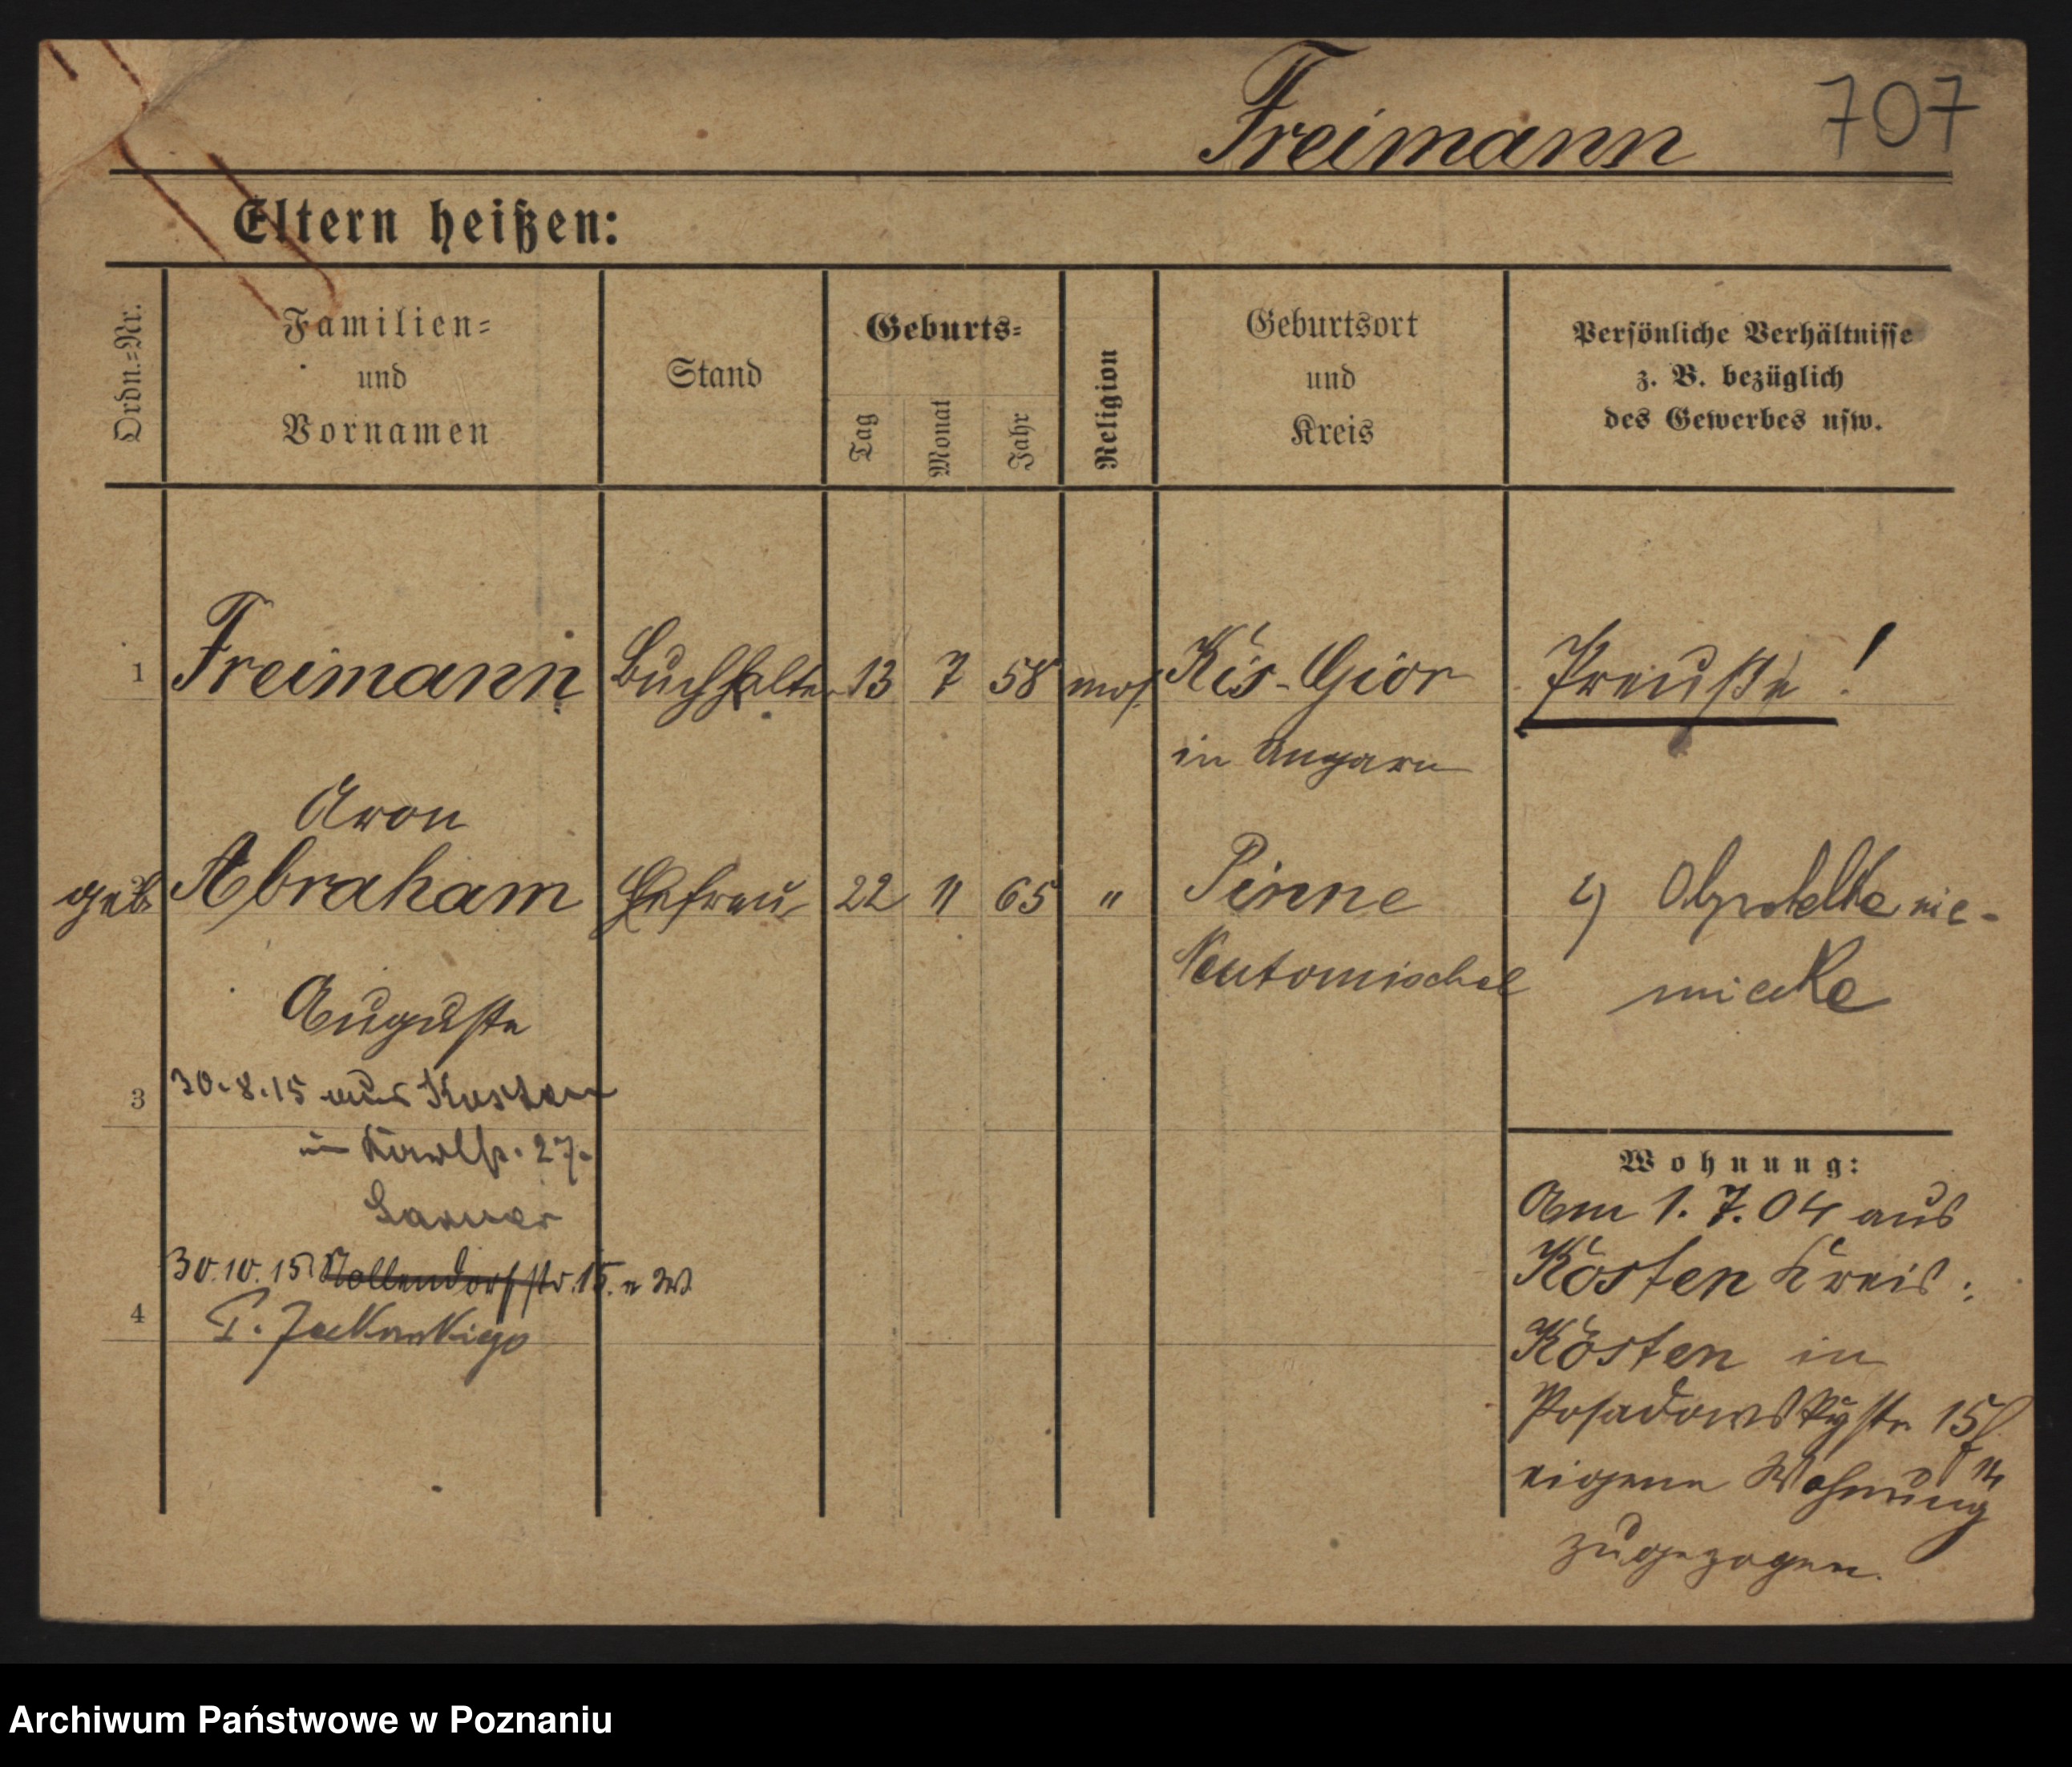 Freimann 707
Eltern heißen:
Ordn.=Nr.
Familien=
und
Vornamen
Stand
Geburts=
Tag
Monat
Jahr
Religion
Geburtsort
und
Kreis
Persönliche Verhältnisse
z. B. bezüglich
des Gewerbes usw.
1 Freimann Buchhalter 13 7 58 mos. Kis-Giór Preuße!
in Ungarn
Aron
geb. Abraham Ehefrau 22 11 65 " Pinne
Neutomischel
Auguste
3 30.8.15 aus Kosten
in 27.
30.10.15 Nollendorfstr. 15. e W
4
Wohnung:
Am 1.7.04 aus
Kosten Kreis:
Kosten in
Posadowskystr. 15
eigene Wohnung
zugezogen.
Archiwum Państwowe w Poznaniu